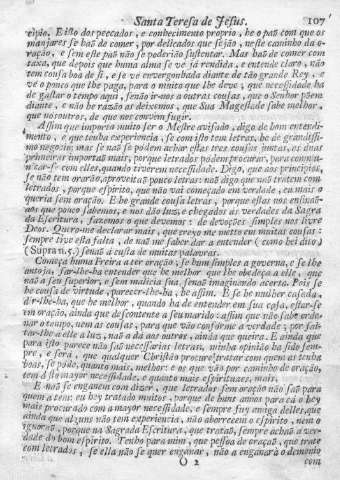 Santa Teresa de Jesus. 107
cipio. E isto dos peccador, e conhecimento proprio, he o paõ com que os
manjares se haõ de comer, por delicados que sejaõ, neste caminho da o-
raçaõ, e sem este paõ naõ se poderiaõ sustentar. Mas haõ de comer com
taxa, que depois que huma alma se ve já rendida, e entende claro, naõ
tem cousa boa de si, e se vê envergonhada diante de taõ grande Rey, e
vé o pouco que lhe paga, para o muito que lhe deve, que necessidade ha
de gastar o tempo aqui, senaõ irmos a outras cousas, que o Senhor põem
diante, e naõ he razaõ as deixemos, que Sua Magestade sabe melhor,
que nòs outros, de que nos convém fugir.
Assim que importa muito ser o Mestre avisado, digo de bom entendi-
mento, e que tenha experiencia, se com isto tem letras, he de grandissi-
mo negocio; mas se naõ se pódem achar estas tres cousas juntas, as duas
primeiras importaõ mais; porque letrados pódem procurar, para commu-
nicar-se com elles, quando tiverem necessidade. Digo, que aos principios,
se naõ tem oraçaõ, aproveitaõ pouco letras: naõ digo que naõ tratem com
letrados, porque espirito, que naõ vaî começado em verdade, eu mais o
queria sem oraçaõ. E he grande cousa letras, porque estas nos ensinaõ
aos que pouco sabemos, e nos daõ luz, e chegados às verdades da Sagra
da Escritura, fazemos o que devemos: de devoções simples nos livre
Deos. Quero-me declarar mais, que creyo me metto em muitas cousas:
sempre tive esta falta, de naõ me saber dar a entender (como hei dito)
(Supra n. 5.) senaõ á custa de muitas palavras.
Começa huma Freira a ter oraçaõ; se hum simplez a governa, e se lhe
antoja, far-lhe-ha entender que he melhor que lhe obedeça a elle, que
naõ a seu superior, e sem malicia sua, senaõ imaginando acerta. Pois se
he cousa de virtude, parecer-lhe-ha, he assim. E se he mulher casada,
dir-lhe-ha, que he melhor, quando ha de entender em sua casa, estar-se
em oraçaõ, ainda que descontente a seu marido: assim que naõ sabe orde-
nar o tempo, nem as cousas, para que vaõ conforme a verdade; por fal-
tar-lhe a elle a luz, naõ a dá aos outros, ainda que queira. E ainda que
para isto parece naõ saõ necessarias letras, minha opiniaõ ha sido sem-
pre, e será, que qualquer Christão procure tratar com quem as tenha
boas, se póde, quanto mais, melhor: e os que vaõ por caminho de oraçaõ,
tem disto mayor necessidade, e quanto mais espirituaes, mais.
E naõ se enganem com dizer, que letrados sem oraçaõ naõ saõ para
quem a tem: eu hey tratado muitos, porque de huns annos para cá o hey
mais procurado com a mayor necessidade, e sempre fuy amiga delles, que
ainda que alguns naõ tem experiencia, naõ aborrecem o espirito, nem o
ignoraõ, porque na Sagrada Escritura, que trataõ, sempre achaõ a ver-
dade do bom espirito. Tenho para mim, que pessoa de oraçaõ, que trate
com letrados, se ella naõ se quer enganar, naõ a enganará o demonio
O 2 com